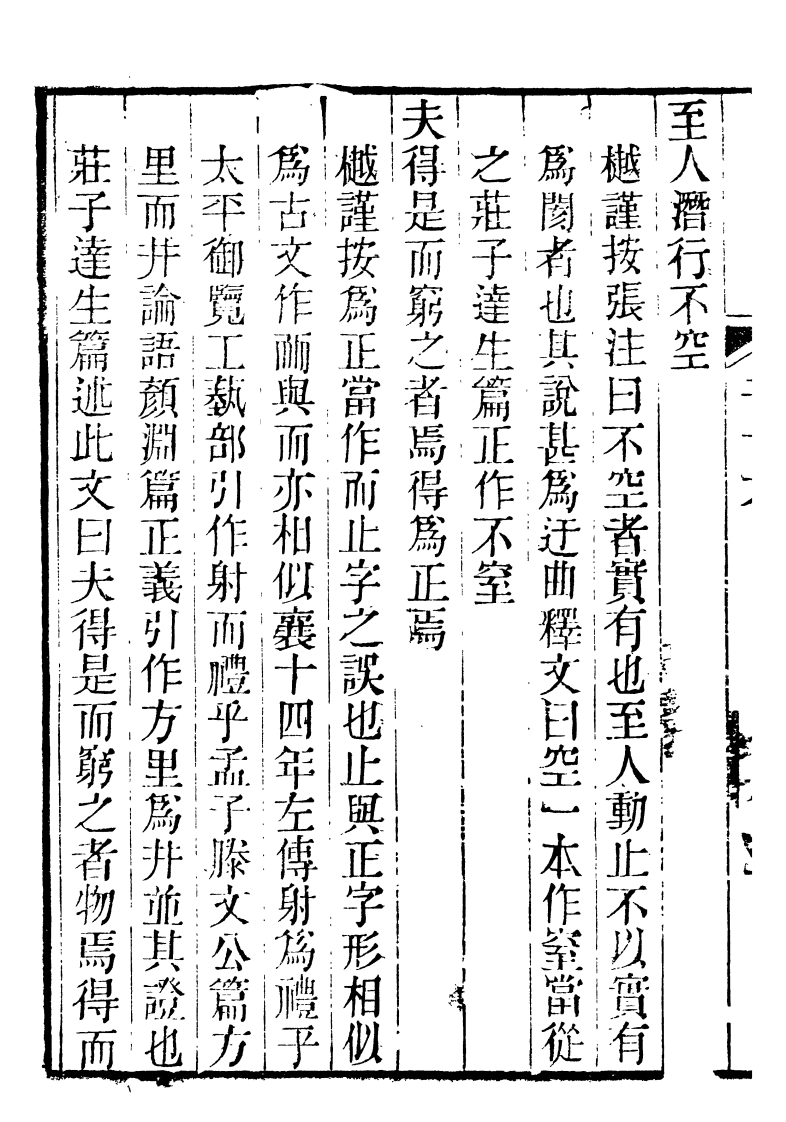 至人潛行不空
樾謹按張注曰不空者實有也至人動止不以實有
爲閡者也其說甚爲迂曲釋文曰空一本作窒當從
之莊子達生篇正作不窒
夫得是而窮之者焉得爲正焉
樾謹按爲正當作而止字之誤也止與正字形相似
爲古文作𦓔與而亦相似襄十四年左傳射爲禮乎
太平御覽工藝部引作射而禮乎孟子滕文公篇方
里而井論語顏淵篇正義引作方里爲井並其證也
莊子達生篇述此文曰夫得是而窮之者物焉得而